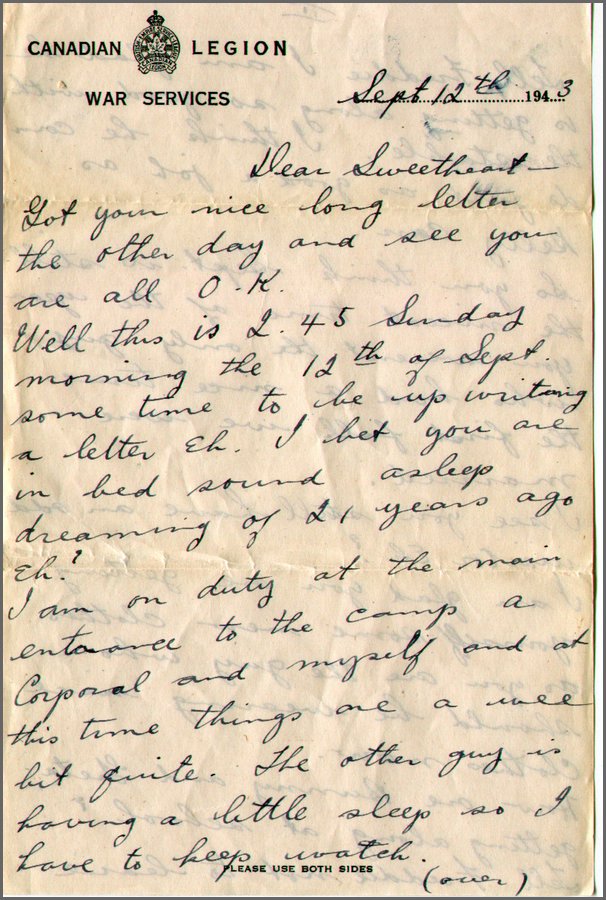 CANADIAN LEGION
WAR SERVICES
Sept. 12th 1943
Dear Sweetheart -
Got your nice long letter
the other day and see you
are all O.K.
Well this is 2.45 Sunday
morning the 12th of Sept.
some time to be up writing
a letter Eh. I bet you are
in bed sound asleep
dreaming of 21 years ago
Eh?
I am on duty at the main
entrance to the camp a
Corporal and myself and at
this time things are a wee
bit quite. The other guy is
having a little sleep so I
have to keep watch.
PLEASE USE BOTH SIDES
(over)